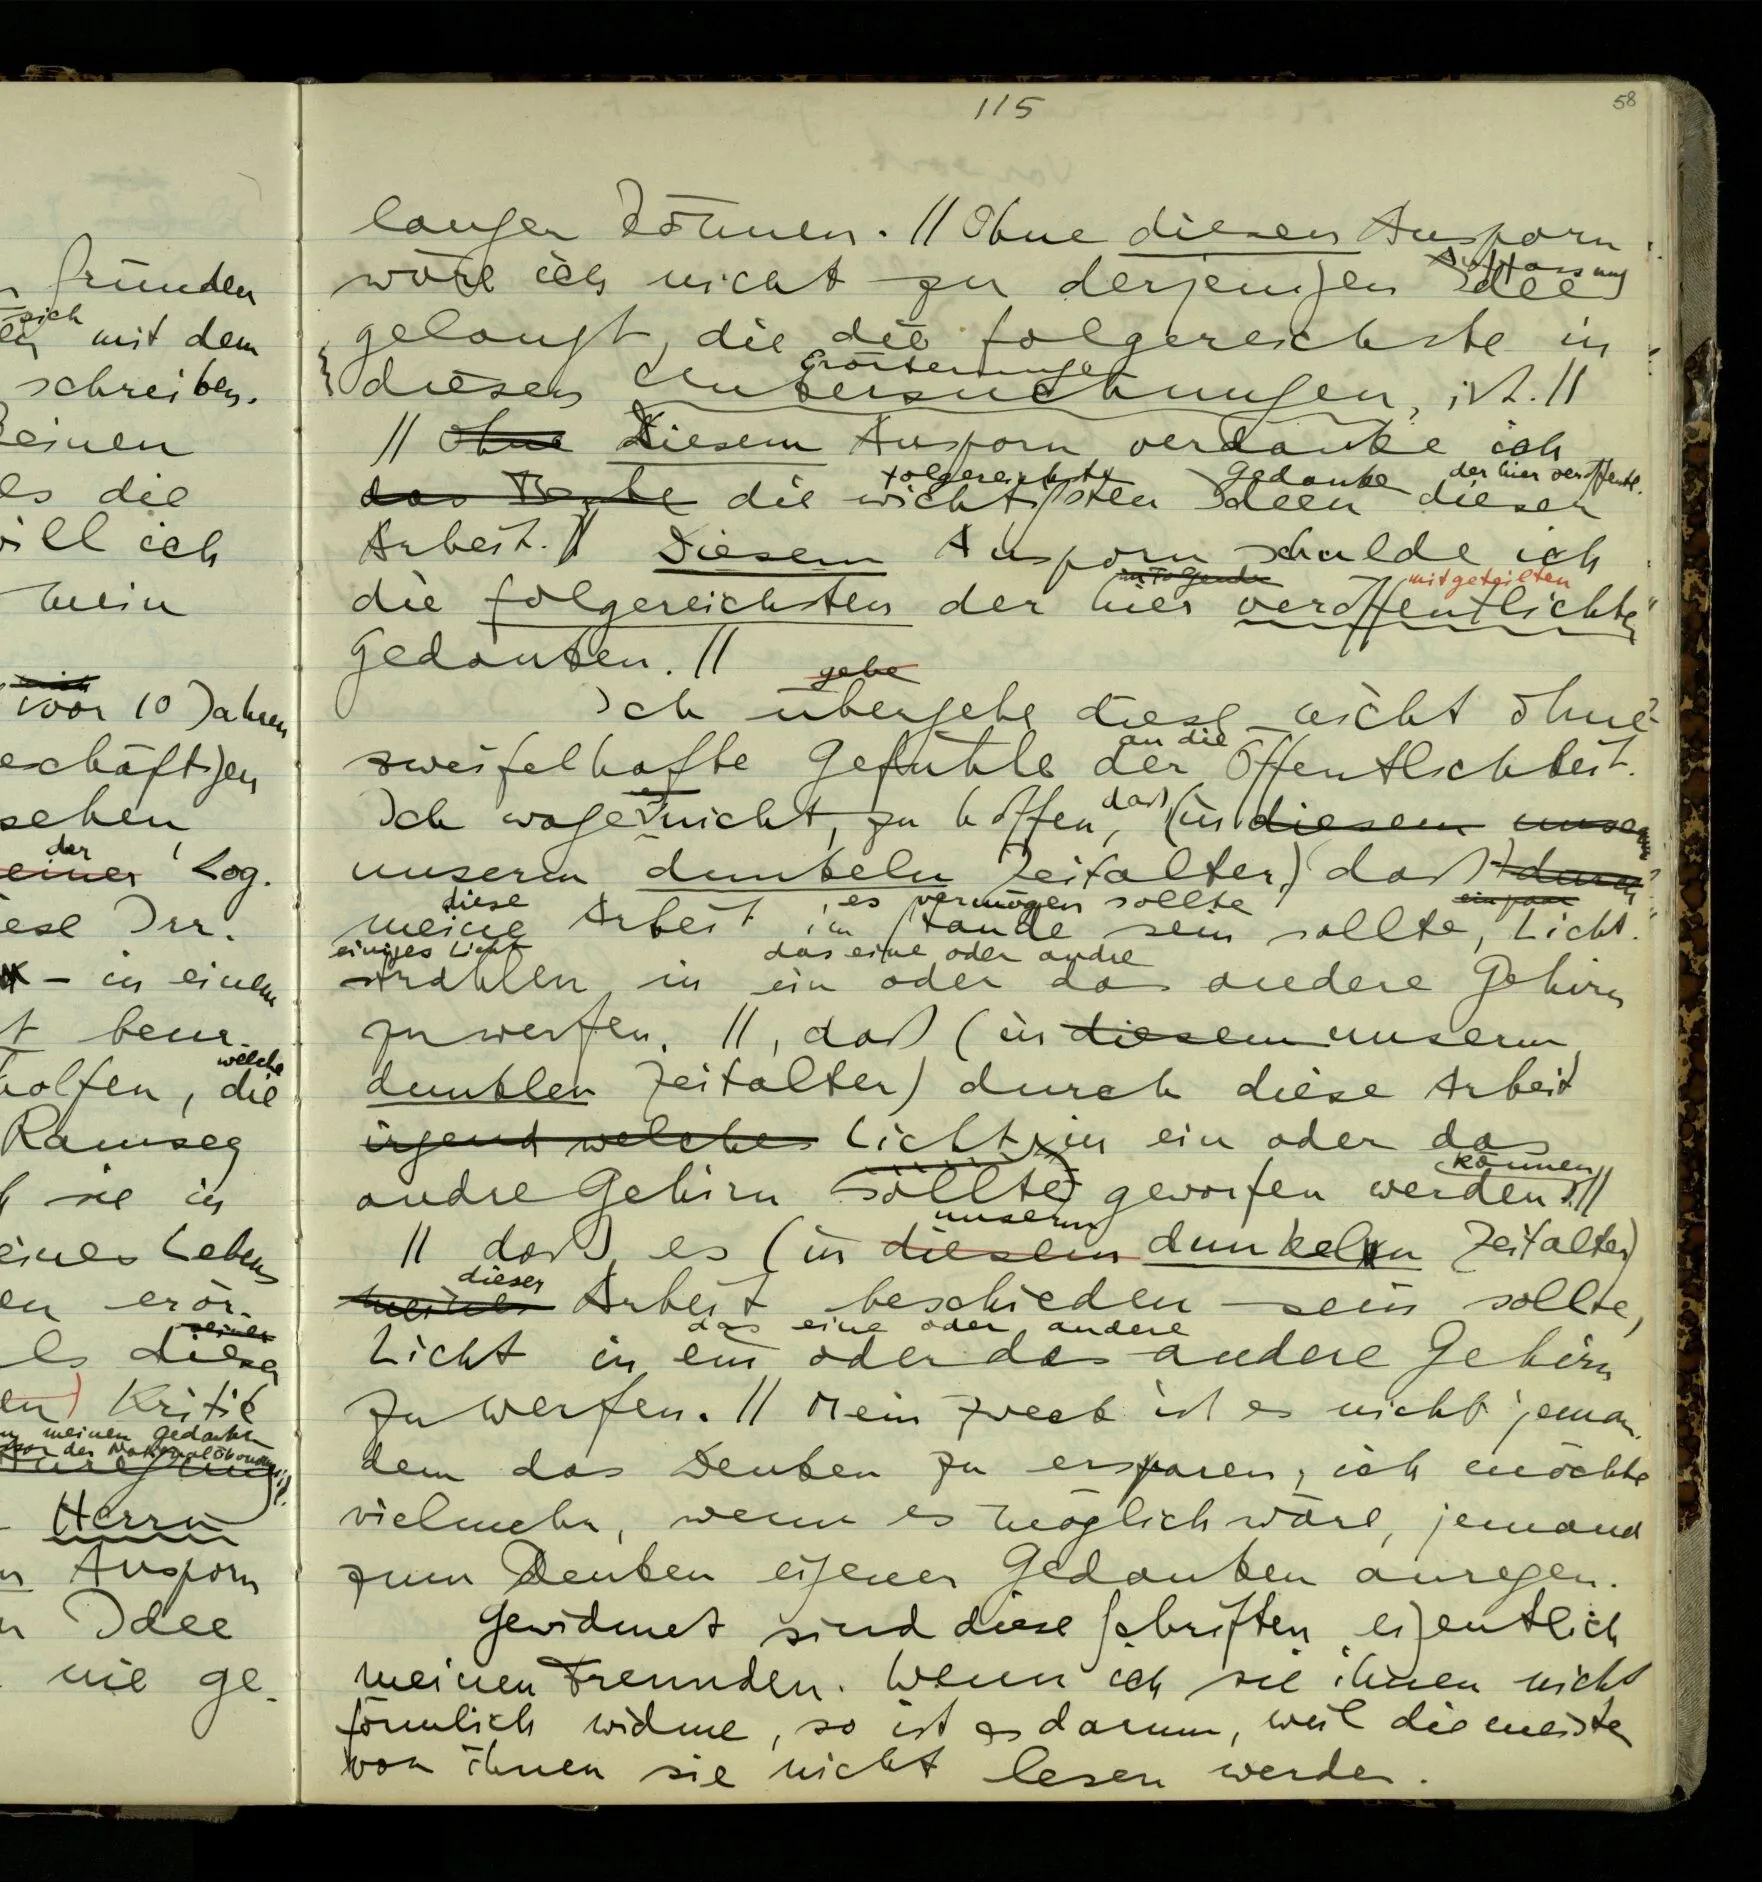 115
58
langen können. // Ohne diesen Ansporn
Auffassung
wäre ich nicht zu derjenigen Idee
gelangt, die die folgereichste in
Erörterungen
diesen Untersuchungen, ist. //
// Ohne Diesem Ansporn verdanke ich
folgereichsten Gedanke der hier veröffentl.
das Beste die wichtigsten Ideen dieser
Arbeit. // Diesem Ansporn schulde ich
im Folgenden mitgeteilten
die folgereichsten der hier veröffentlichten
Gedanken. //
gebe
Ich übergebe diese nicht ohne
an die
zweifelhafte Gefühle der Öffentlichkeit.
es daß
Ich wage nicht, zu hoffen, (in diesem unserm
unserm dunkeln Zeitalter,) daß durch
diese es vermögen sollte ein paar
meine Arbeit im stande sein sollte, Licht-
einiges Licht das eine oder andre
strahlen in ein oder das andere Gehirn
zu werfen. //, daß (in diesem unserm
dunklen Zeitalter) durch diese Arbeit
irgend welches Licht in ein oder das
können
andre Gehirn sollte geworfen werden. //
unserm
// daß es (in diesem dunkeln Zeitalter)
dieser
meiner Arbeit beschieden sein sollte,
das eine oder andere
Licht in ein oder das andere Gehirn
zu werfen. // Mein Zweck ist es nicht jeman-
dem das Denken zu ersparen; ich möchte
vielmehr, wenn es möglich wäre, jemand
zum Denken eigener Gedanken anregen.
Gewidmet sind diese Schriften eigentlich
meinen Freunden. Wenn ich sie ihnen nicht
förmlich widme, so ist es darum, weil die meisten
von ihnen sie nicht lesen werden.
Gründen
sich
mit dem
schreiben.
einen
es die
will ich
mein
vor 10 Jahren
beschäftigen
sehen,
der
einer Log.
diese Irr-
– in einem
welche
holfen, die
Ramsey
sie in
eines Lebens
erör-
seiner
dieser
Kritik
meinen Gedanken
der Nationalökonomie
Herrn
Ansporn
Idee
nie ge-